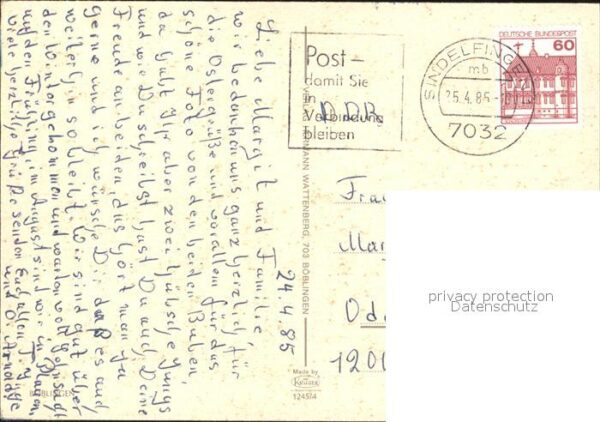 24.4.85
Liebe Margit und Familie,
wir bedanken uns ganz herzlich für
die Ostergrüße und vor allem für das
schöne Foto von den beiden Buben,
da habt Ihr aber zwei hübsche Jungs
und wie Du schreibst hast Du auch Deine
Freude an beiden, das hört man ja
gerne und ich wünsche Dir daß es auch
weiterhin so bleibt. Wir sind gut über
den Winter gekommen und warten voll Sehnsucht
auf den Frühling, im August sind wir in Plauen,
viele herzliche Grüße senden Euch allen
und O. Arnold
BÖBLINGEN
HERMANN WATTENBERG, 703 BÖBLINGEN
Made by
KRÜGER
1245/4
Post –
damit Sie
in
Verbindung
bleiben
DDR
SINDELFINGEN
mb
25.4.85
7032
DEUTSCHE BUNDESPOST
60
Frau
Mar
Ode
1201
privacy protection
Datenschutz